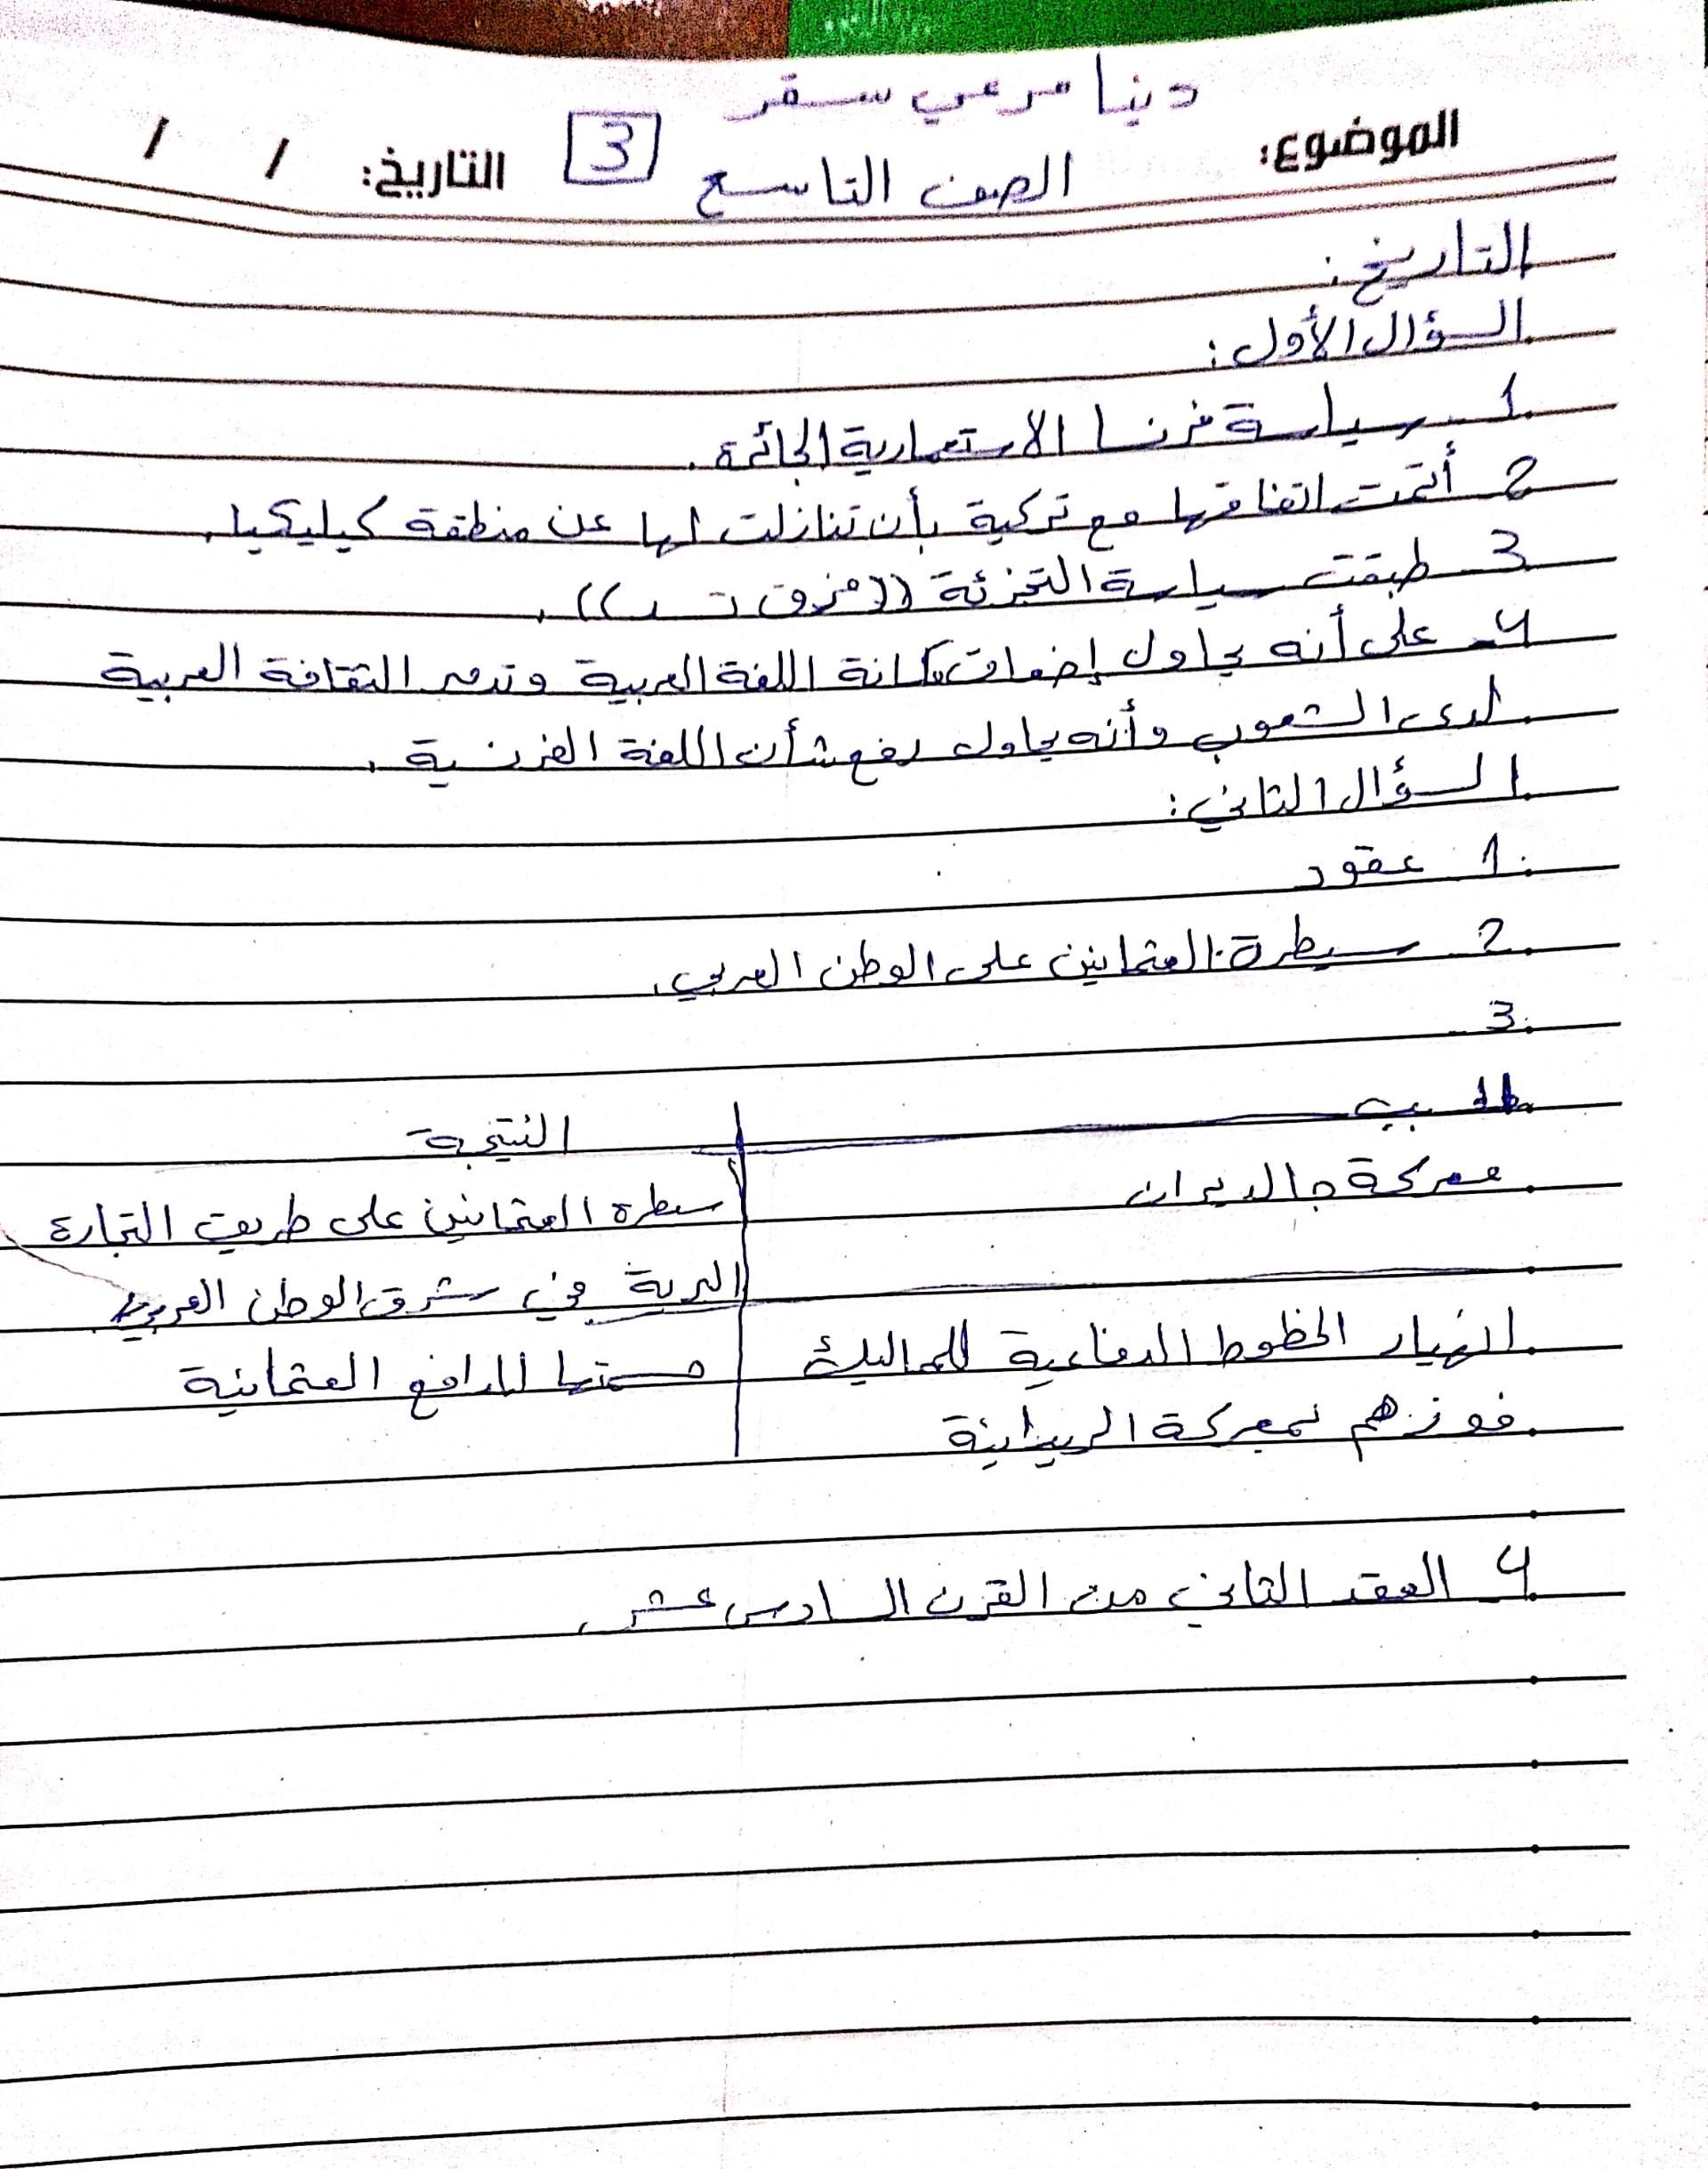 دينا مرعي سقر
الموضوع: الصف التاسع 3 التاريخ: / /
التاريخ:
السؤال الأول:
1 سياسة فرنسا الاستعمارية الجائرة.
2 أتمت اتفاقها مع تركية بأن تنازلت لها عن منطقة كيليكيا.
3 طبقت سياسة التجزئة ((فرق تسد)).
4- على أنه يحاول إضعاف مكانة اللغة العربية وتدمير الثقافة العربية
لدى الشعوب وأنه يحاول رفع شأن اللغة الفرنسية.
السؤال الثاني:
1 عقود
2 سيطرة العثمانين على الوطن العربي.
3
السبب | النتيجة
معركة جالديران | سطرة العثمانين على طريق التجارة
البرية في شرق الوطن العربي
انهيار الخطوط الدفاعية للماليك | للدافع العثمانية
فوزهم بمعركة الريدانية
4 العقد الثاني من القرن السادس عشر.